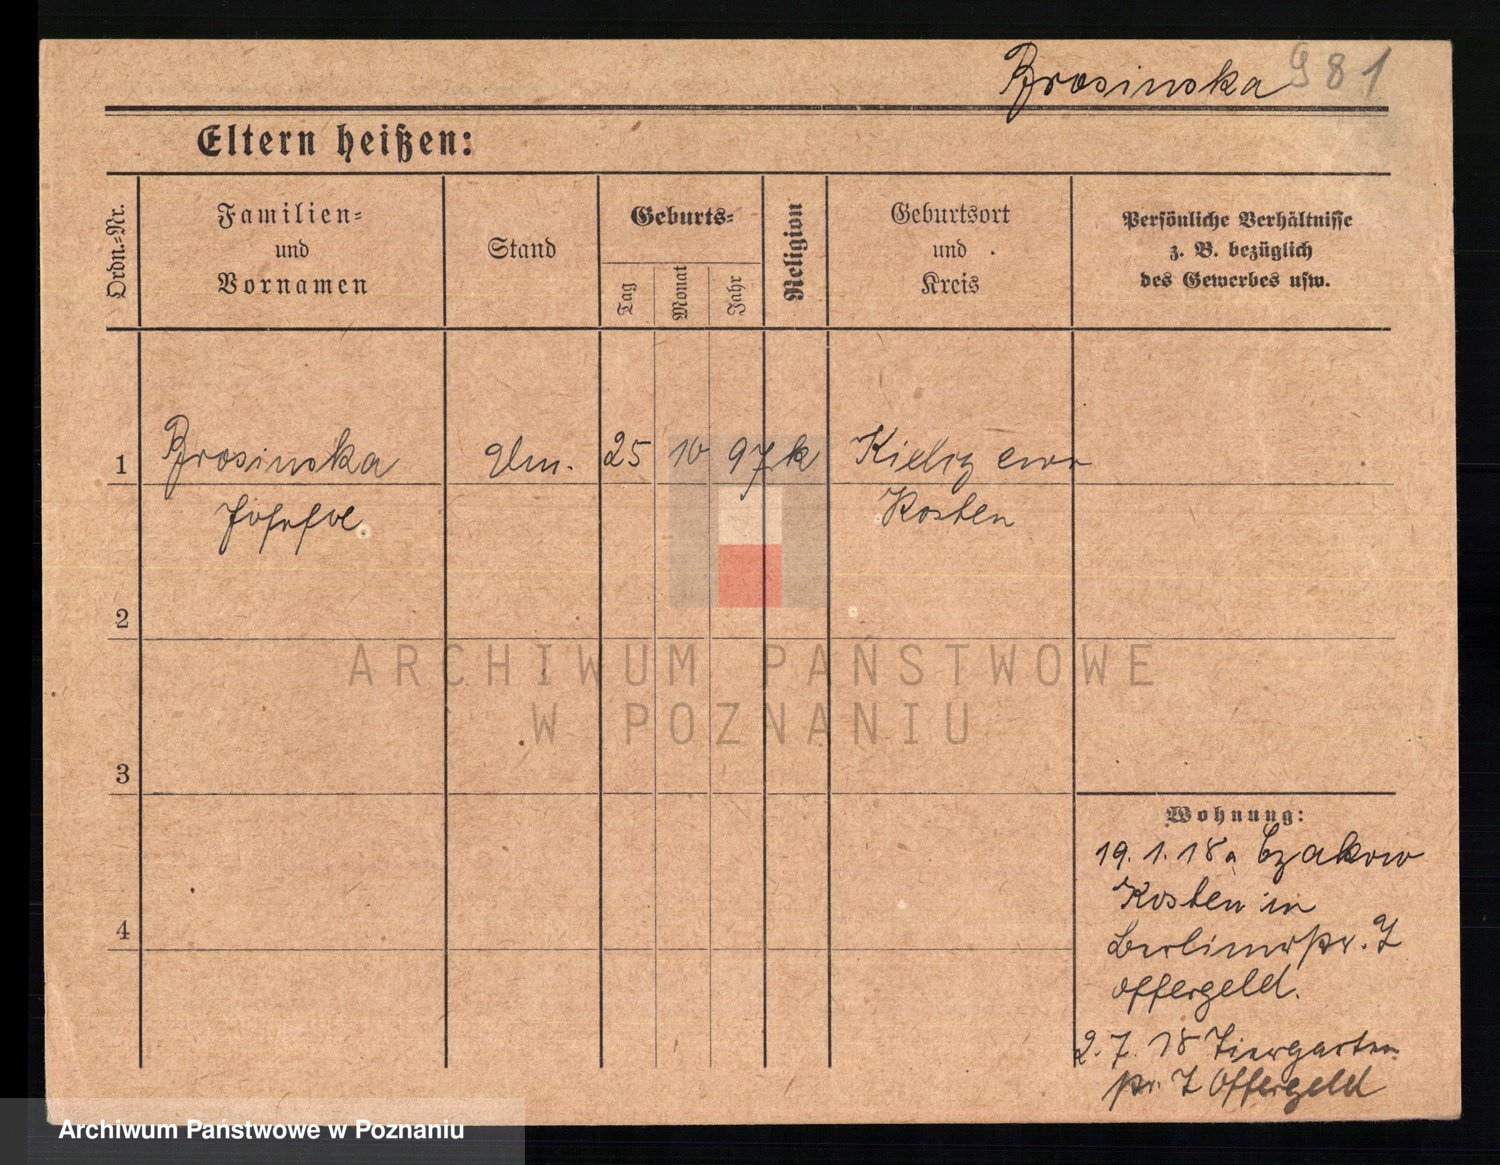 Brosinska 981
Eltern heißen:
Ordn.-Nr.
Familien-
und
Vornamen
Stand
Geburts-
Tag
Monat
Jahr
Religion
Geburtsort
und
Kreis
Persönliche Verhältnisse
z. B. bezüglich
des Gewerbes usw.
1 Brosinska 25 10 97 k
Josefa Kosten
2
ARCHIWUM PAŃSTWOWE
W POZNANIU
3
Wohnung:
19.1.18 Czakow
Kosten in
4
Berlinerstr. 7
Offergeld.
2.7.18 Tiergarten
str. 7 Offergeld
Archiwum Państwowe w Poznaniu